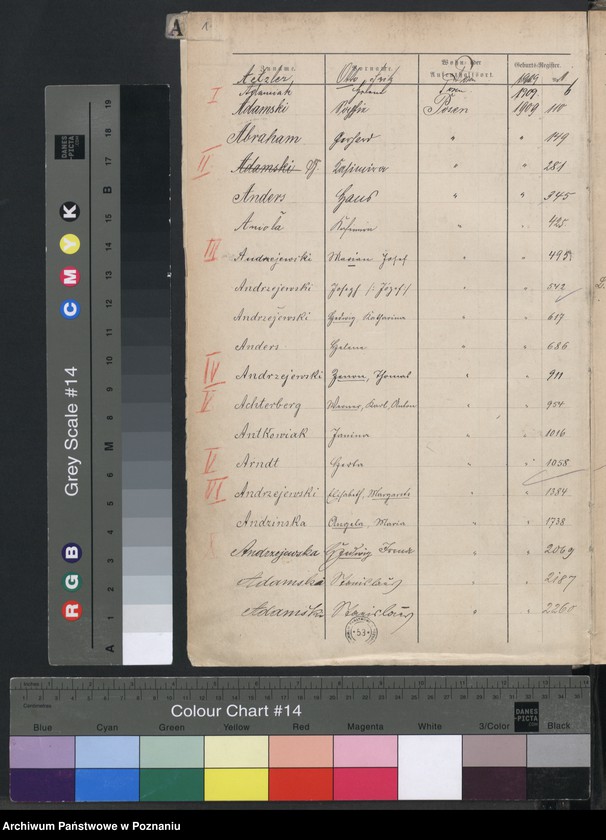 A
1
Zuname. Vorname. Wohn- oder Aufenthaltsort. Geburts-Register.
Aetzler, Otto Fritz 1909
I 1909 6
Adamski Posen 1909 110
Abraham Gerhard " 149
II Adamski Kasimira " 281
Anders Hans " " 345
Aniola " 425
III Andrzejewski Marian Josef " 495
Andrzejewski Joseph (Józef) " 542
Andrzejewski Hedwig Katharina " 617
Anders Helene " 686
IV Andrzejewski Zenon, Thomas " " 911
V Achterberg Werner, Karl, Anton " " 954
Antkowiak Janina " " 1016
V Arndt Gerda " " 1058
VI Andrzejewski Elisabeth, Margarete " 1384
Andzinska Angela, Maria " " 1738
Andrzejewska Hedwig Irene " " 2069
Adamska Stanislaus " " 2187
Adamski Stanislaus " "
53
DANES
PICTA
Grey Scale #14
R G B
C M Y K
A 1 2 3 4 5 6 M 8 9 10 11 12 13 14 15 B 17 18 19
Colour Chart #14
DANES
PICTA
Blue Cyan Green Yellow Red Magenta White 3/Color Black
Archiwum Państwowe w Poznaniu